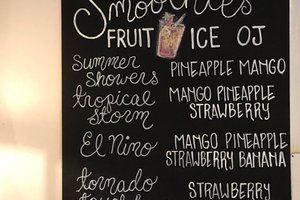 Smoothies
FRUIT ICE OJ
Summer Showers PINEAPPLE MANGO
tropical storm MANGO PINEAPPLE STRAWBERRY
El Nino MANGO PINEAPPLE STRAWBERRY BANANA
tornado STRAWBERRY